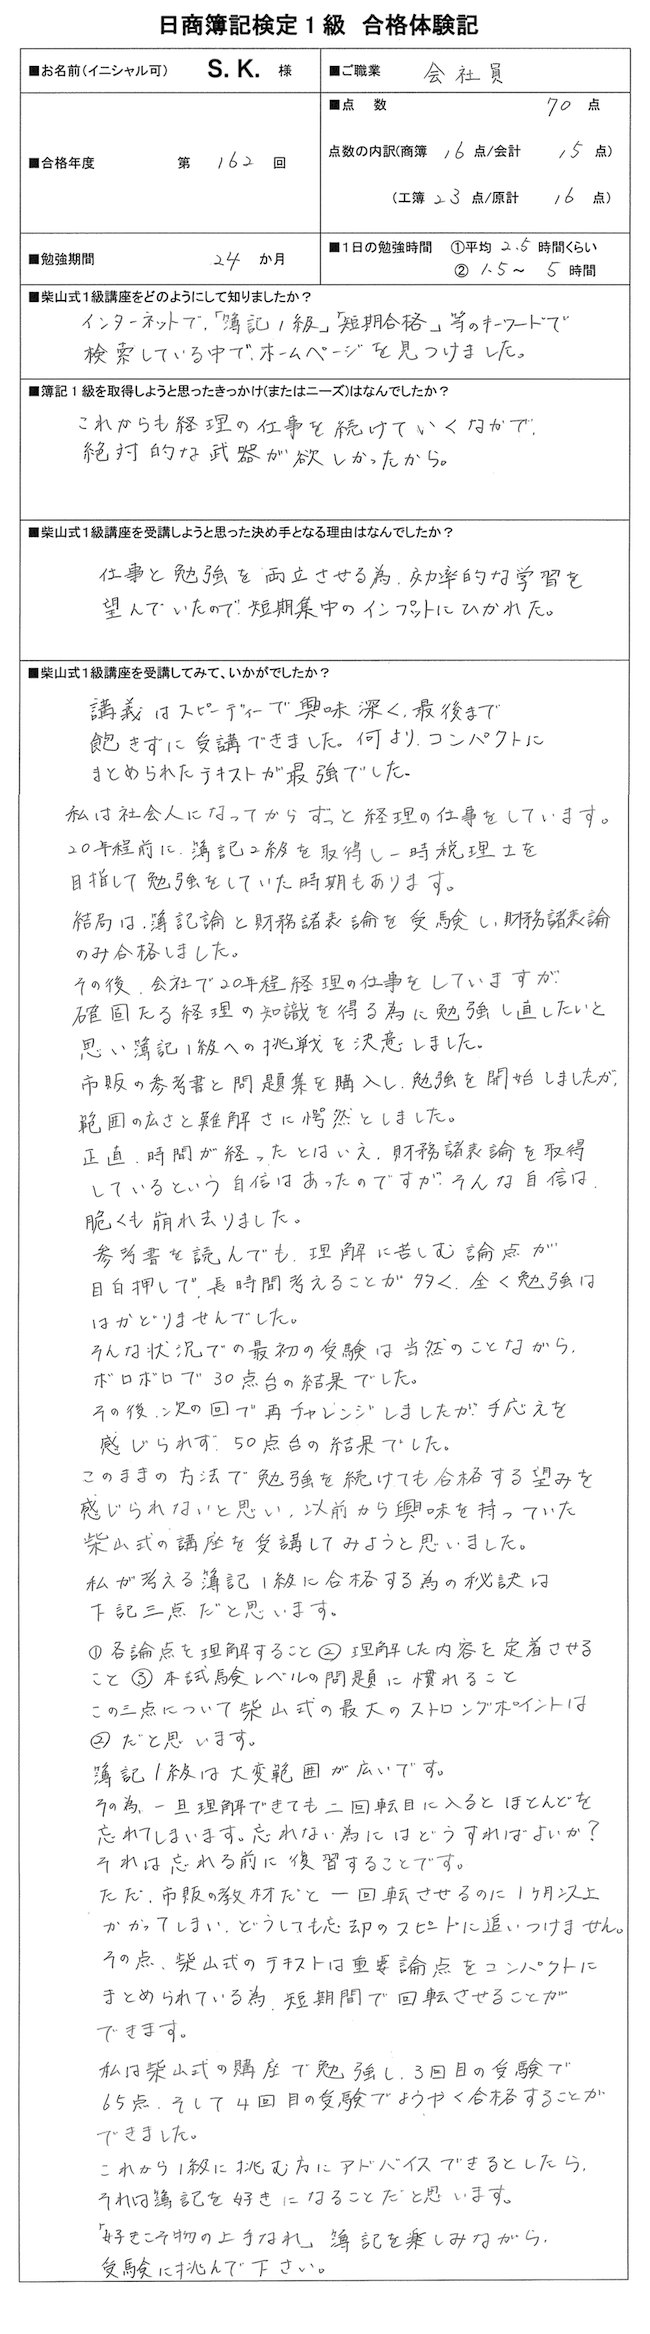 日商簿記検定1級 合格体験記
■お名前(イニシャル可) S.K. 様
■ご職業 会社員
■合格年度 第 162 回
■点 数 70 点
点数の内訳(商簿 16 点/会計 15 点)
(工簿 23 点/原計 16 点)
■勉強期間 24 か月
■1日の勉強時間 ①平均 2.5 時間くらい
② 1.5~ 5 時間
■柴山式1級講座をどのようにして知りましたか?
インターネットで、「簿記1級」「短期合格」等のキーワードで
検索している中で、ホームページを見つけました。
■簿記1級を取得しようと思ったきっかけ(またはニーズ)はなんでしたか?
これからも経理の仕事を続けていくなかで、
絶対的な武器が欲しかったから。
■柴山式1級講座を受講しようと思った決め手となる理由はなんでしたか?
仕事と勉強を両立させる為、効率的な学習を
望んでいたので、短期集中のインプットにひかれた。
■柴山式1級講座を受講してみて、いかがでしたか?
講義はスピーディーで興味深く、最後まで
飽きずに受講できました。何より、コンパクトに
まとめられたテキストが最強でした。
私は社会人になってからずっと経理の仕事をしています。
20年程前に、簿記2級を取得し一時税理士を
目指して勉強をしていた時期もあります。
結局は、簿記論と財務諸表論を受験し、財務諸表論
のみ合格しました。
その後、会社で20年程経理の仕事をしていますが、
確固たる経理の知識を得る為に勉強し直したいと
思い簿記1級への挑戦を決意しました。
市販の参考書と問題集を購入し、勉強を開始しましたが、
範囲の広さと難解さに愕然としました。
正直、時間が経ったとはいえ、財務諸表論を取得
しているという自信はあったのですが、そんな自信は、
脆くも崩れ去りました。
参考書を読んでも、理解に苦しむ論点が
目白押しで、長時間考えることが多く、全く勉強は
はかどりませんでした。
そんな状況での最初の受験は当然のことながら、
ボロボロで30点台の結果でした。
その後、次の回で再チャレンジしましたが、手応えを
感じられず、50点台の結果でした。
このままの方法で勉強を続けても合格する望みを
感じられないと思い、以前から興味を持っていた
柴山式の講座を受講してみようと思いました。
私が考える簿記1級に合格する為の秘訣は
下記三点だと思います。
①各論点を理解すること②理解した内容を定着させる
こと③本試験レベルの問題に慣れること
この三点について柴山式の最大のストロングポイントは
②だと思います。
簿記1級は大変範囲が広いです。
その為、一旦理解できても二回転目に入るとほとんどを
忘れてしまいます。忘れない為にはどうすればよいか?
それは忘れる前に復習することです。
ただ、市販の教材だと一回転させるのに1ヶ月以上
かかってしまい、どうしても忘却のスピードに追いつけません。
その点、柴山式のテキストは重要論点をコンパクトに
まとめられている為、短期間で回転させることが
できます。
私は柴山式の講座で勉強し、3回目の受験で
65点、そして4回目の受験でようやく合格することが
できました。
これから1級に挑む方にアドバイスできるとしたら、
それは簿記を好きになることだと思います。
「好きこそ物の上手なれ」簿記を楽しみながら、
受験に挑んで下さい。